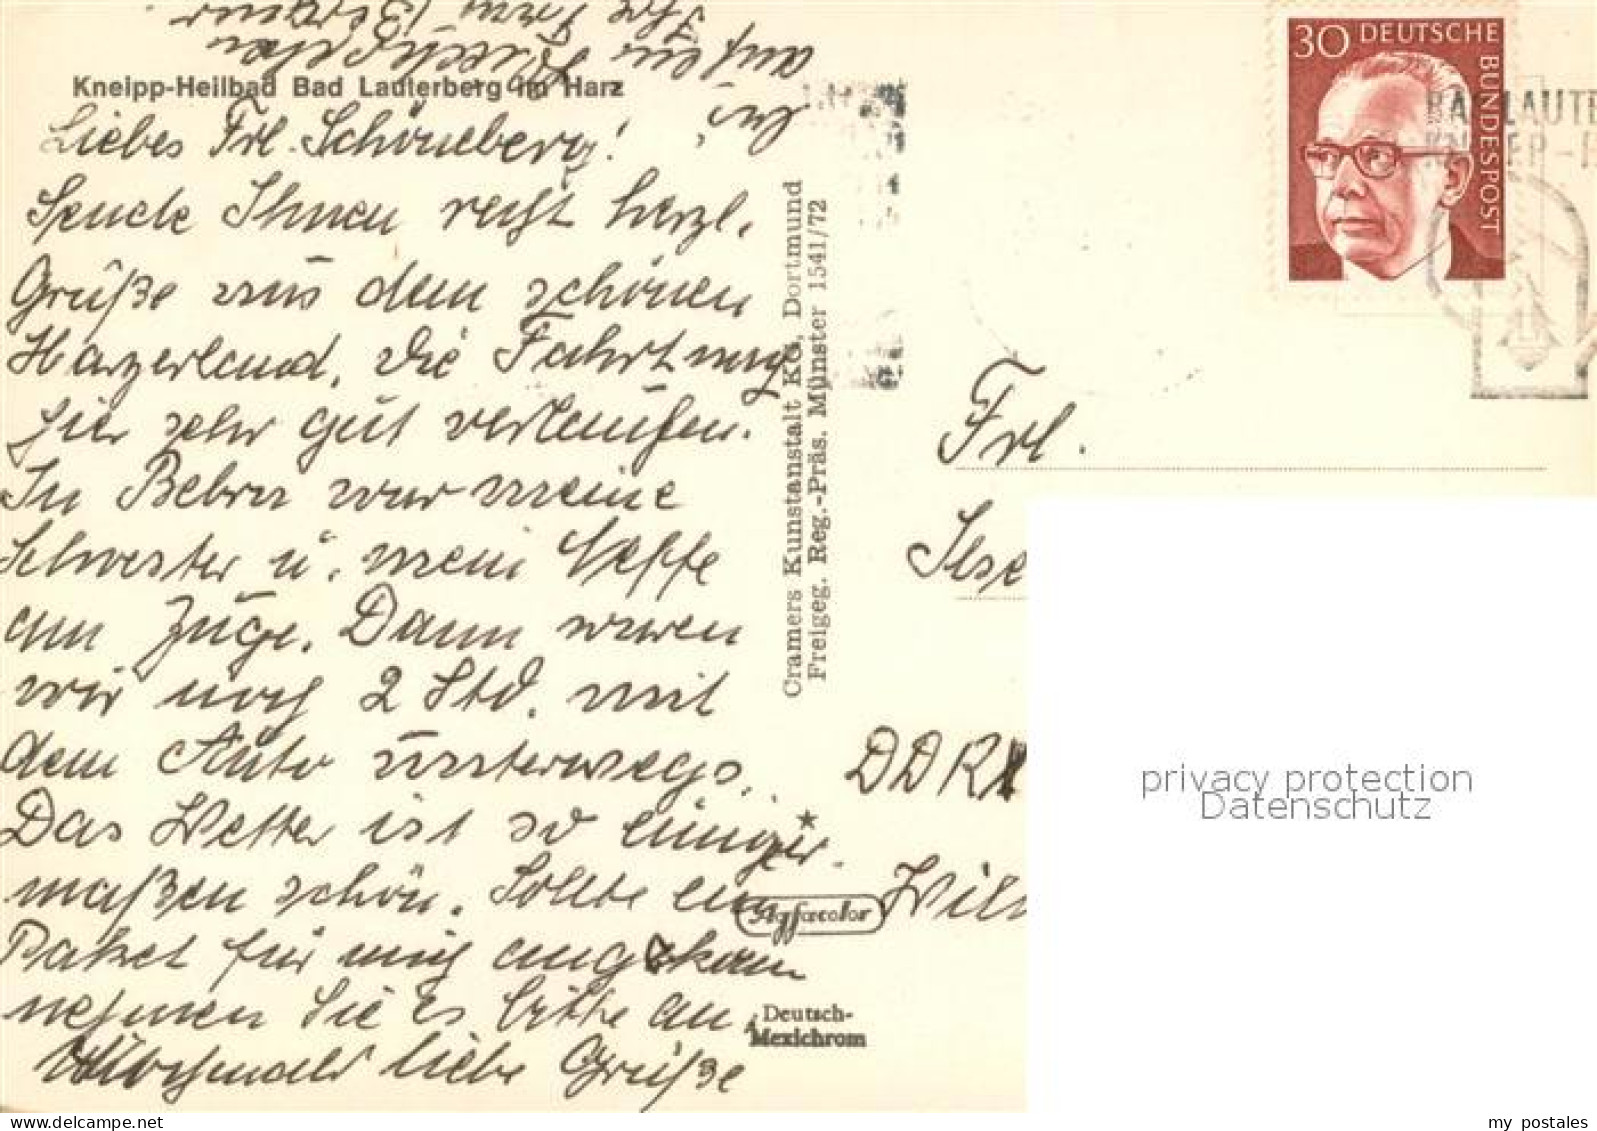 Kneipp-Heilbad Bad Lauterberg im Harz
Liebes Frl. Schöneberg!
Sende Ihnen recht herzl.
Grüße aus dem schönen
Harzerland. Die Fahrt war
hier sehr gut verlaufen.
In Bebra war meine
Schwester u. mein Neffe
am Zuge. Dann waren
wir noch 2 Std. mit
dem Auto unterwegs.
Das Wetter ist so einiger-
maßen schön. Sollte ein
Paket für mich angekom
nehmen Sie es bitte an,
Nochmals liebe Grüße
auf ein
Ihre Frau Berger
Cramers Kunstanstalt KG, Dortmund
Freigeg. Reg.-Präs. Münster 1541/72
Agfacolor
Deutsch-
Mexichrom
30 DEUTSCHE
BUNDESPOST
BAD LAUTE
Frl.
Ilse
DDR
privacy protection
Datenschutz
my postales